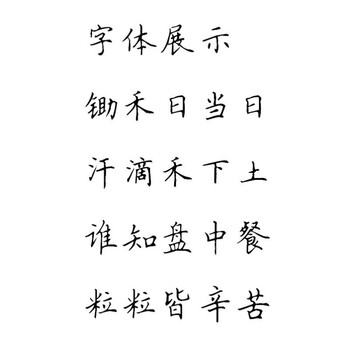 字体展示
锄禾日当日
汗滴禾下土
谁知盘中餐
粒粒皆辛苦